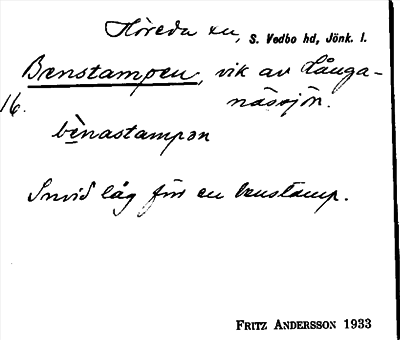 Höreda sn, S. Vedbo hd, Jönk. l.
Benstampen, vik av Långa-
16. nässjön.
bènastampən
Invid låg förr en benstamp.
FRITZ ANDERSSON 1933